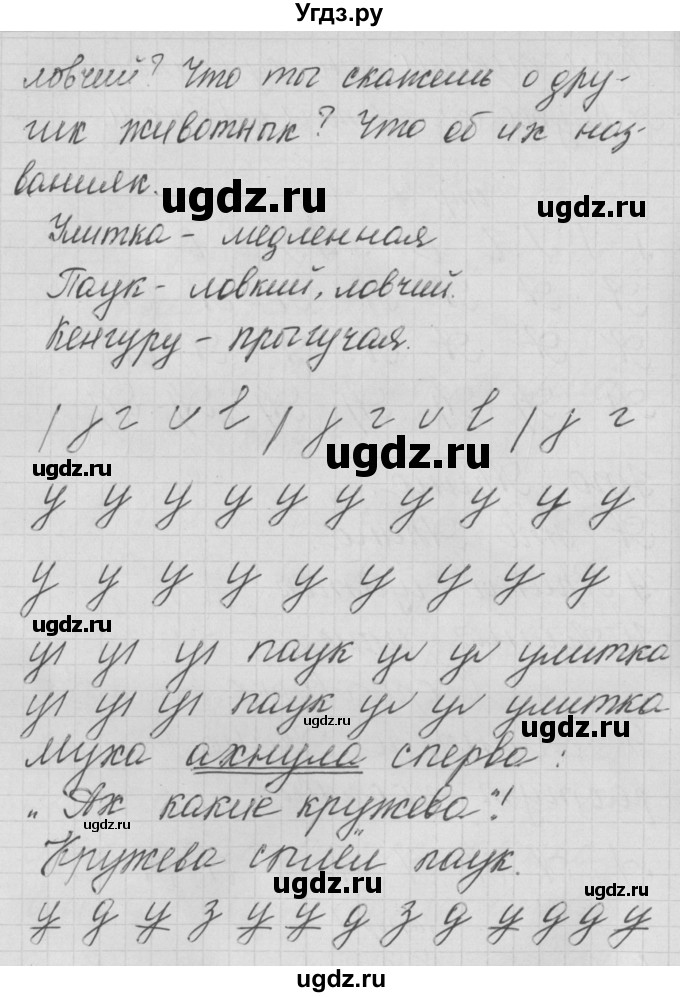 Угдз.ру
ловчий? Что ты скажешь о дру-
гих животных? Что об их наз-
ваниях.
ugdz.ru
ugdz.ru
Улитка - медленная
Паук - ловкий, ловчий.
Кенгуру - прыгучая.
ugdz.ru
ugdz.ru
у у у у у у у у у у
у у у у у у у у у
ugdz.ru
у у у паук у у улитка
у у у паук у у улитка
ugdz.ru
ugdz.ru
Муха ахнула сперва:
„Ах какие кружева"!
ugdz.ru
Кружева сплёл паук.
ugdz.ru
ugdz.ru
у д у з у у д з д у д д у
ugdz.ru